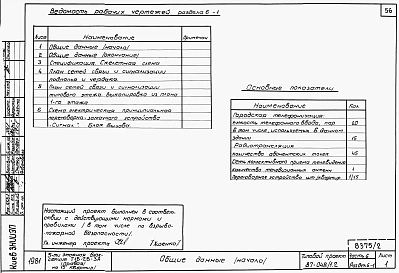 56
Ведомость рабочих чертежей раздела 6-1
Лист Наименование Примечан
1 Общие данные /начало/
2 Общие данные /окончание/
3 Спецификация. Скелетная схема
4 План сетей связи и сигнализации
подполья и чердака.
5 План сетей связи и сигнализации
типового этажа. Выкопировка из плана
1-го этажа
6 Схема электрическая принципиальная
переговорно-замочного устройства
"Сигнал". Блок вызова.
Основные показатели
Наименование Кол.
Городская телефонизация:
емкость телефонного ввода, пар 20
в том числе, используемых в данном
здании 15
Радиотрансляция
количество абонентских точек 45
Сеть коллективного приема телевидения
количество телевизионных антенн 1
Переговорное устройство шт/квартир 1/15
Настоящий проект выполнен в соответ-
ствии с действующими нормами и
правилами / в том числе по взрыво-
пожарной безопасности/.
Гл. инженер проекта
8375/2
КиевЗНИИЭП
1981
5-ти этажная блок-
секция
на 15 квартир
Общие данные /начало/
Типовой проект
Часть 6
Лист
1